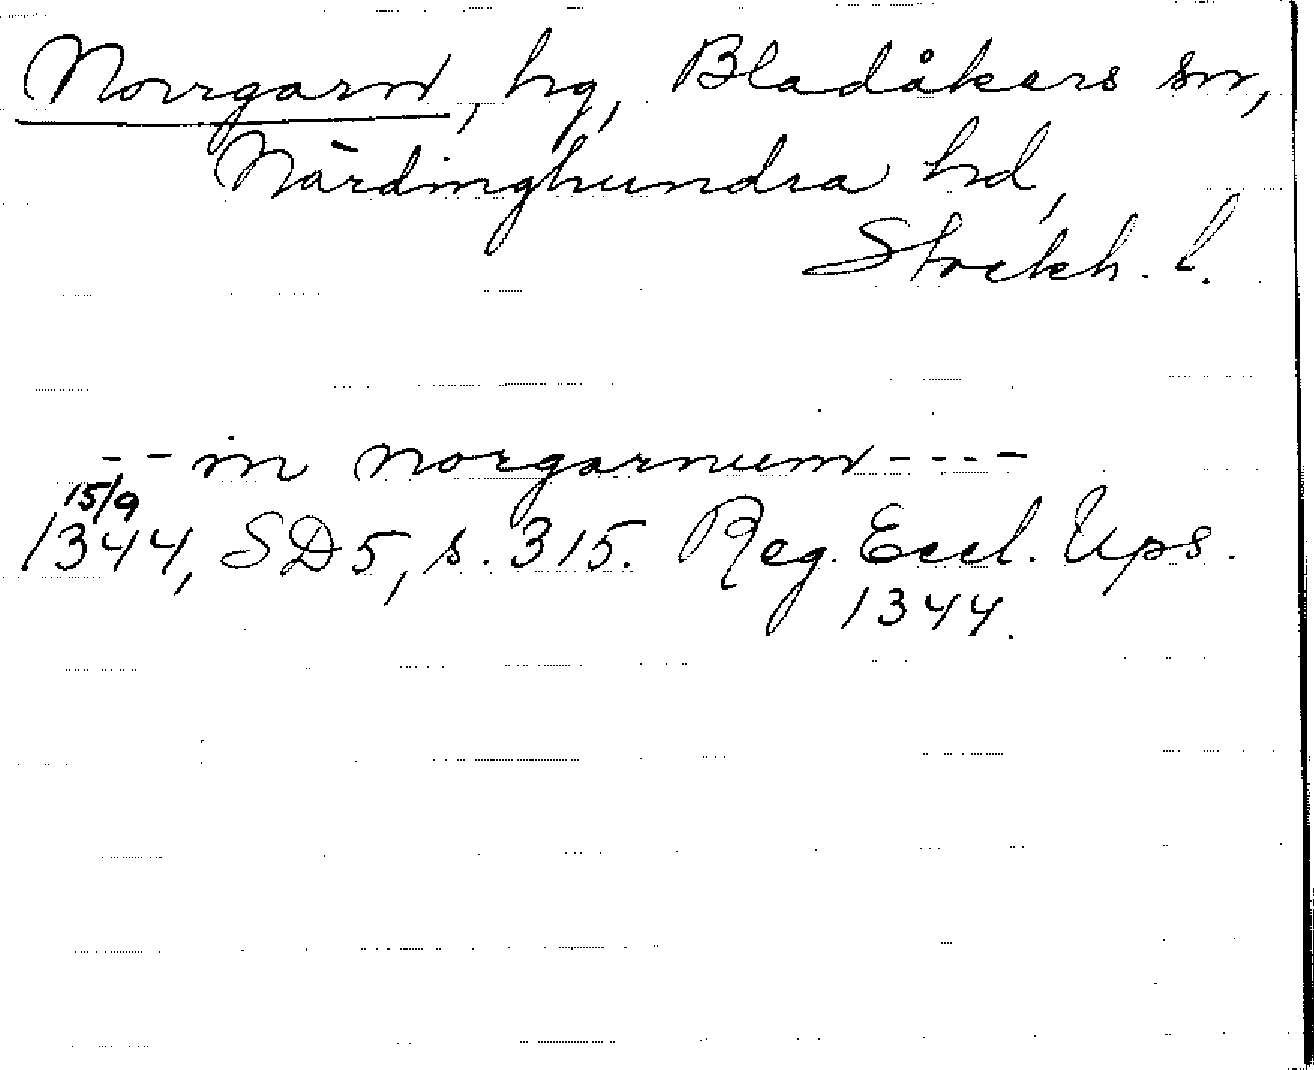 Norrgarn, hg, Bladåkers sn,
Närdinghundra hd,
Stockh. l.
-- in norgarnum ----
15/9
1344, SD5, s. 315. Reg. Eccl. Ups.
1344.